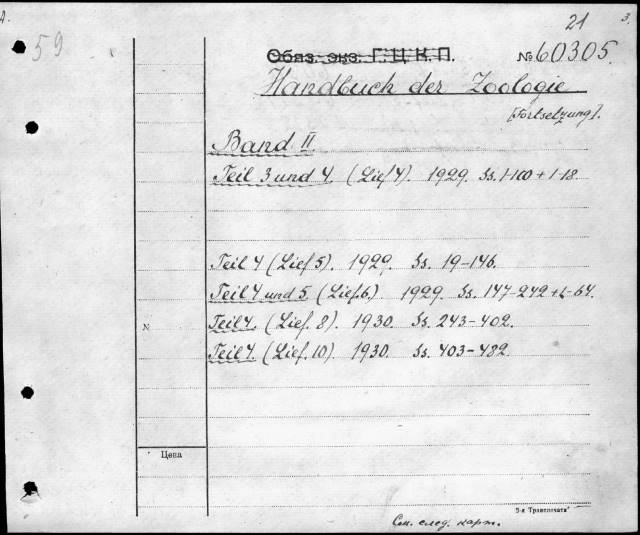 21
3.
59
Обяз. экз. Г.Ц.К.П. № 60305.
Handbuch der Zoologie
[Fortsetzung].
Band II
Teil 3 und 4. (Lief 4). 1929. Ss. 1-100 + 1-18.
Teil 4 (Lief 5). 1929. Ss. 19-146.
Teil 4 und 5. (Lief. 6.) 1929. Ss. 147-242 + 1-64.
N Teil 4. (Lief. 8). 1930. Ss. 243-402.
Teil 4. (Lief. 10). 1930. Ss. 403-482.
Цена
См. след. карт.